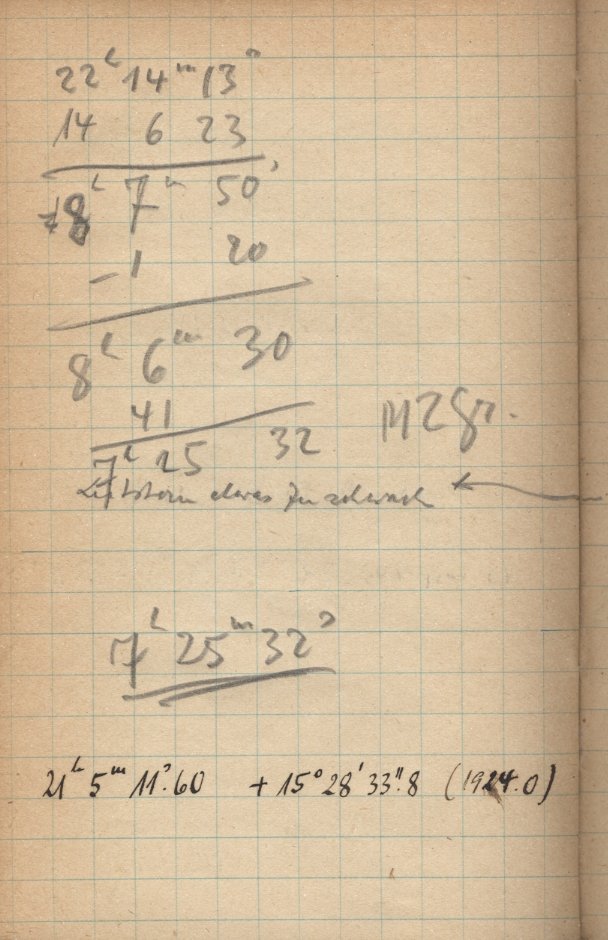 22ʰ 14ᵐ 13ˢ
14 6 23
8ʰ 7ᵐ 50ˢ
-1 20
8ʰ 6ᵐ 30
41
7ʰ 25 32
etwas zu schwach
7ʰ 25ᵐ 32ˢ
21ʰ 5ᵐ 11ˢ.60 + 15° 28' 33".8 (1924.0)